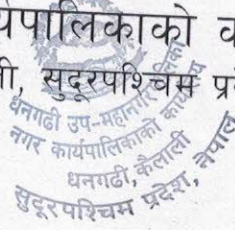 र्यपालिकाको क
ी, सुदूरपश्चिम प्र
धनगढी उप-महानगरपालिका
नगर कार्यपालिकाको कार्यालय
धनगढी, कैलाली
सुदूरपश्चिम प्रदेश, नेपाल